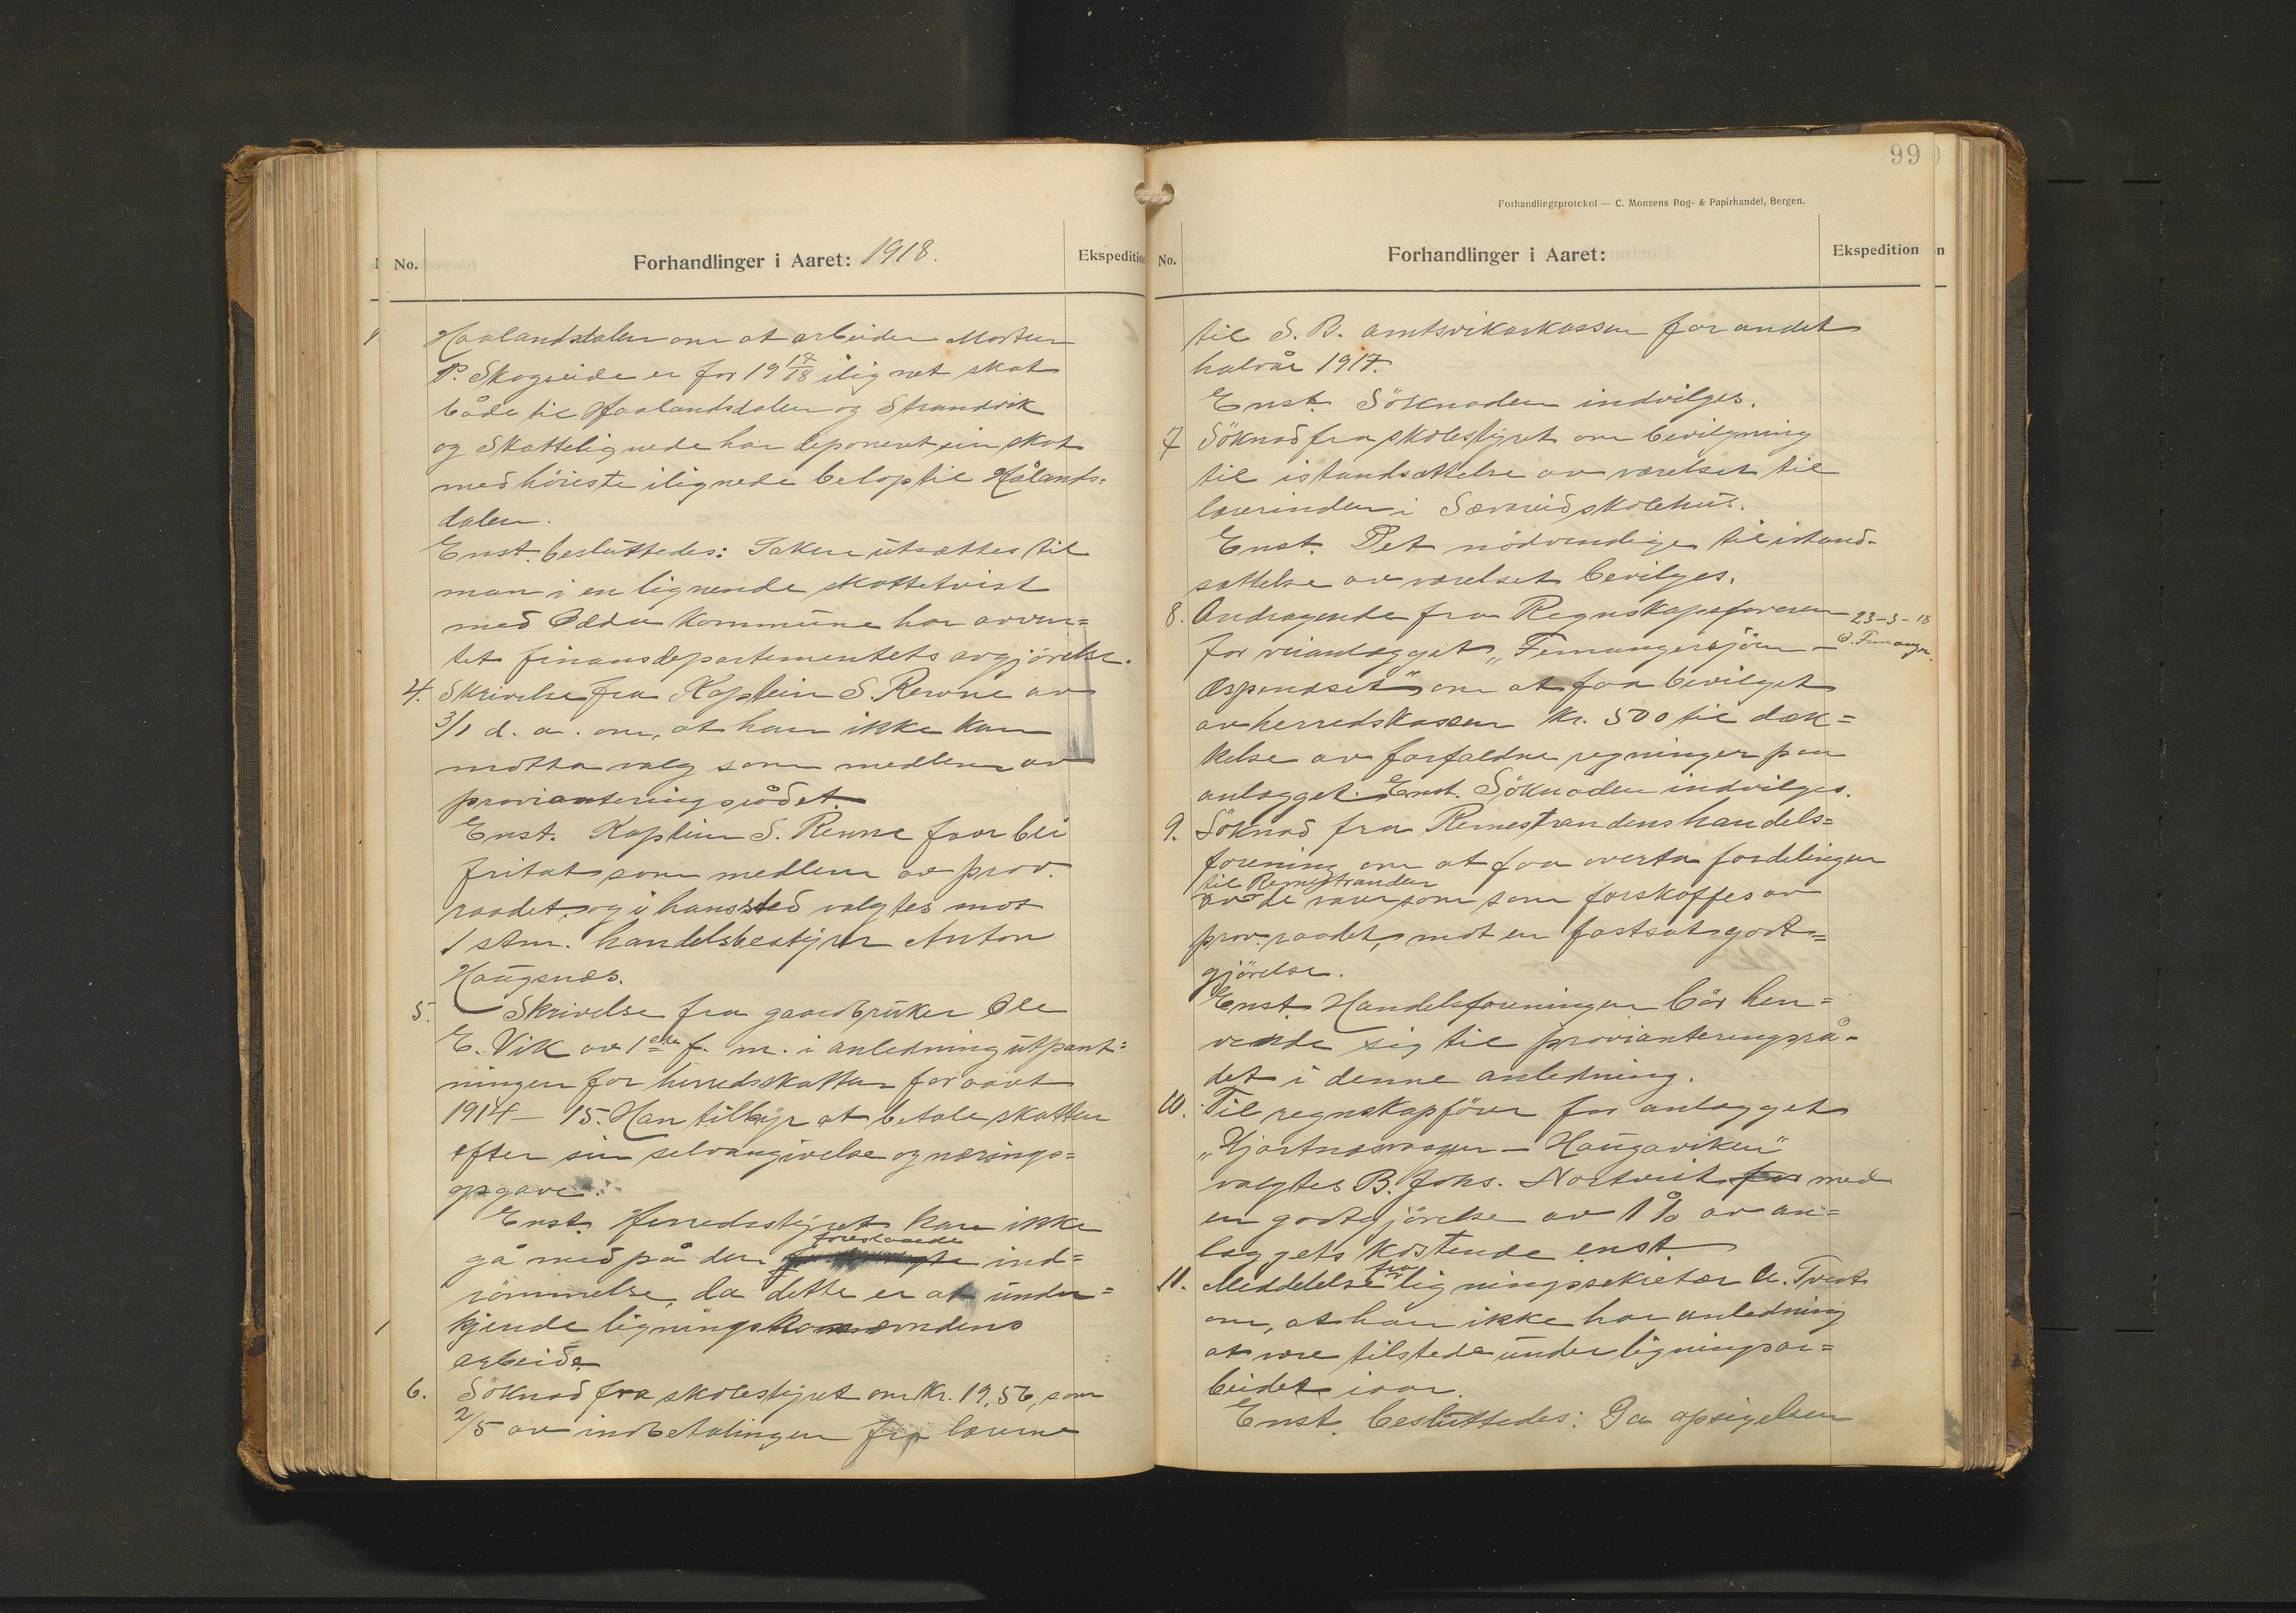 No. Forhandlinger i Aaret: 1918. Ekspedition
Haalandsdalen om at arbeider Morten
P. Skogseide er for 19 17/18 ilignet skat
både til Haalandsdalen og Strandvik
og Skattelignede har deponeret sin skat
med höieste ilignede belop til Hålands=
dalen.
Enst. besluttedes: Saken utsættes til
man i en lignende skattetvist
med Odda kommune har avven=
tet finansdepartementets avgjörelse.
4. Skrivelse fra Kaptein S. Revne av
3/1 d. a. om, at han ikke kan
motta valg som medlem av
provianteringsrådet.
Enst. Kaptein S. Revne faar bli
fritat som medlem av prov.
raadet, og i hans sted valgtes mot
1 stm. handelsbestyrer Anton
Haugsnæs.
5. Skrivelse fra gaardbruker Ole
E. Vik av 1ste f. m. i anledning utpant=
ningen for herredsskatten for aaret
1914 – 15. Han tilbyr at betale skatten
efter sin selvangivelse og nærings=
opgave.
Enst. Herredsstyret kan ikke
gå med på den forestaaede ind=
römmelse, da dette er at under=
kjende ligningsnævndens
arbeide.
6. Söknad fra skolestyret om kr. 19,56, som
2/5 av indbetalingen fra lærerne
99
Forhandlingsprotokol — C. Monsens Bog- & Papirhandel, Bergen.
No. Forhandlinger i Aaret: Ekspedition
til S. B. amtsvikarkassen for andet
halvår 1917.
Enst. Söknaden indvilges.
7 Söknad fra skolestyret om bevilgning
til istandsættelse av værelset til
lærerinden i Sævareid skolehus.
Enst. Det nödvendige til istand-
sættelse av værelset bevilges.
8. Andragende fra Regnskapsföreren 23-3-18
for veianlægget „Femangersjöen –
Espenæset" om at faa bevilget
av herredskassen kr. 500 til dæk=
kelse av forfaldne regninger paa
anlægget. Enst. Söknaden indvilges.
9. Söknad fra Remestrandens handels=
forening om at faa overta fordelingen
til Remestranden
av de varer som som forskaffes av
prov. raadet, mot en fastsat godt=
gjörelse.
Enst. Handelsforeningen bör hen=
vende sig til provianteringsrå-
det i denne anledning.
10. Til regnskapsförer for anlægget
„Hjartnæsvaagen – Haugaviken"
valgtes B. Johs. Nortveit for med
en godtgjörelse av 1 % av an=
læggets kostende enst.
11. Meddelelse fra ligningssekretær A. Tveit
om, at han ikke har anledning
at være tilstede under ligningsar=
beidet iaar.
Enst. besluttedes: Da opsigelsen